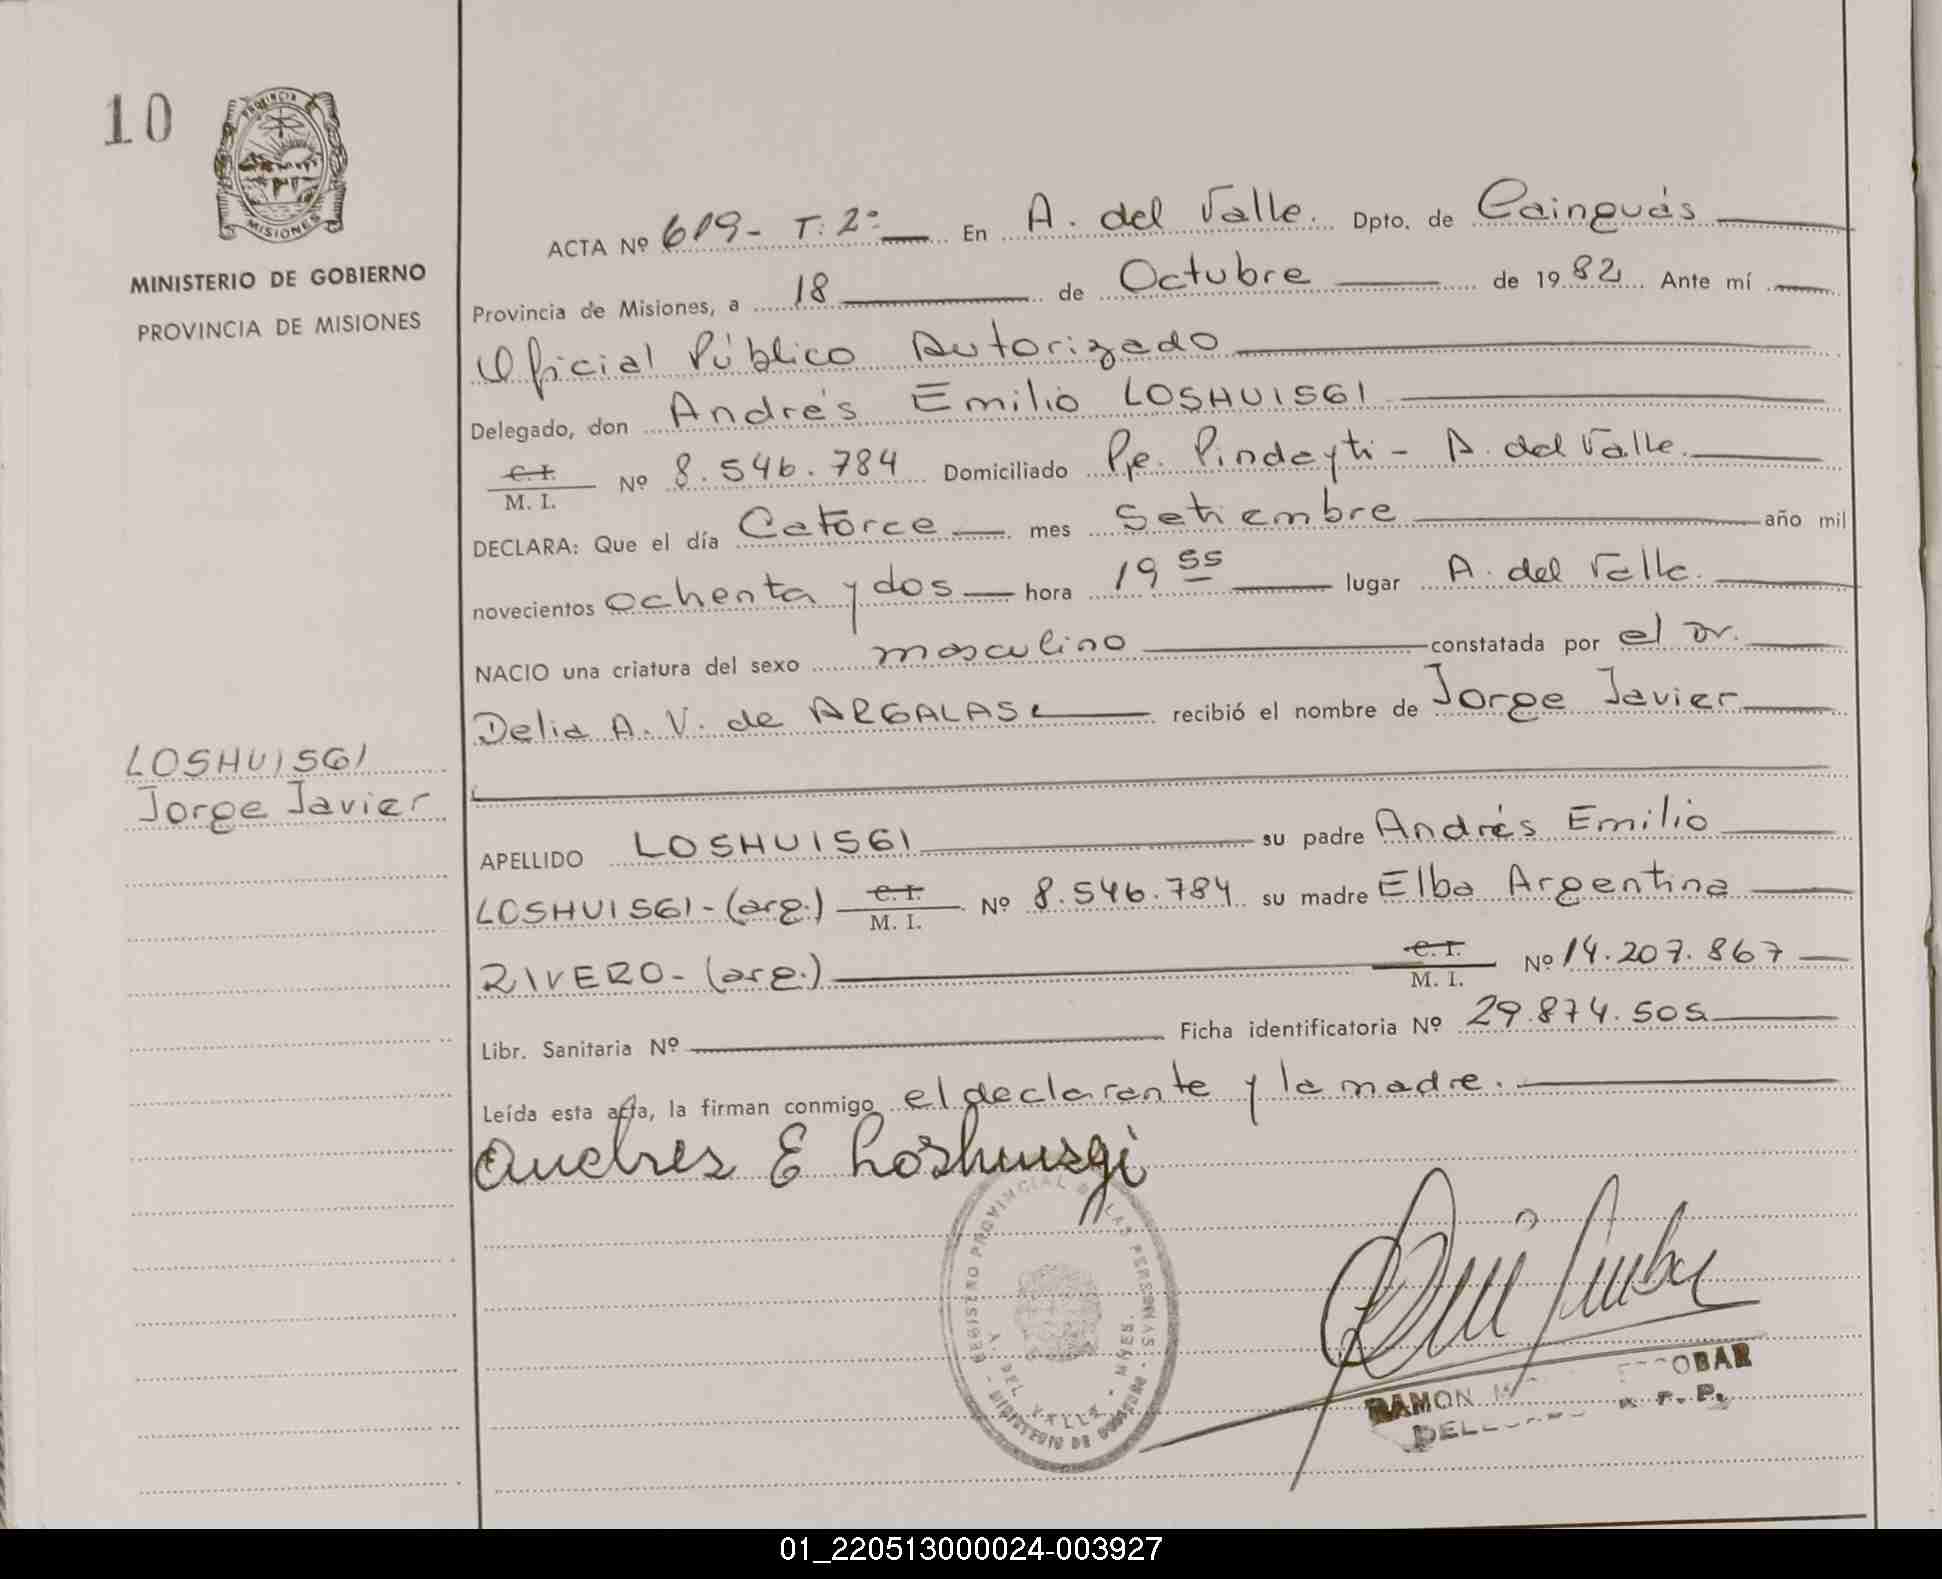 10
PROVINCIA
MISIONES
MINISTERIO DE GOBIERNO
PROVINCIA DE MISIONES
ACTA Nº 619- T: 2º En A. del Valle. Dpto. de Cainguás
Provincia de Misiones, a 18 de Octubre de 1982 Ante mí
Oficial Público Autorizado
Delegado, don Andrés Emilio LOSHUISGI
C.I.
M. I. Nº 8.546.784 Domiciliado Pje. Pindayti - A. del Valle.
DECLARA: Que el día Catorce mes Setiembre año mil
novecientos ochenta y dos hora 19 55 lugar A. del Valle.
NACIO una criatura del sexo masculino constatada por el Dr.
Delia A. V. de ARGALAS recibió el nombre de Jorge Javier
LOSHUISGI
Jorge Javier
APELLIDO LOSHUISGI su padre Andrés Emilio
LOSHUISGI - (arg.) C.I. M. I. Nº 8.546.784 su madre Elba Argentina
RIVERO - (arg.) C.I. M. I. Nº 14.207.867
Libr. Sanitaria Nº Ficha identificatoria Nº 29.874.505
Leída esta acta, la firman conmigo el declarante y la madre.
Andres E Loshuisgi
REGISTRO PROVINCIAL DE LAS PERSONAS
A. DEL VALLE - MNES.
MINISTERIO DE GOBIERNO
RAMON ESCOBAR
01_220513000024-003927